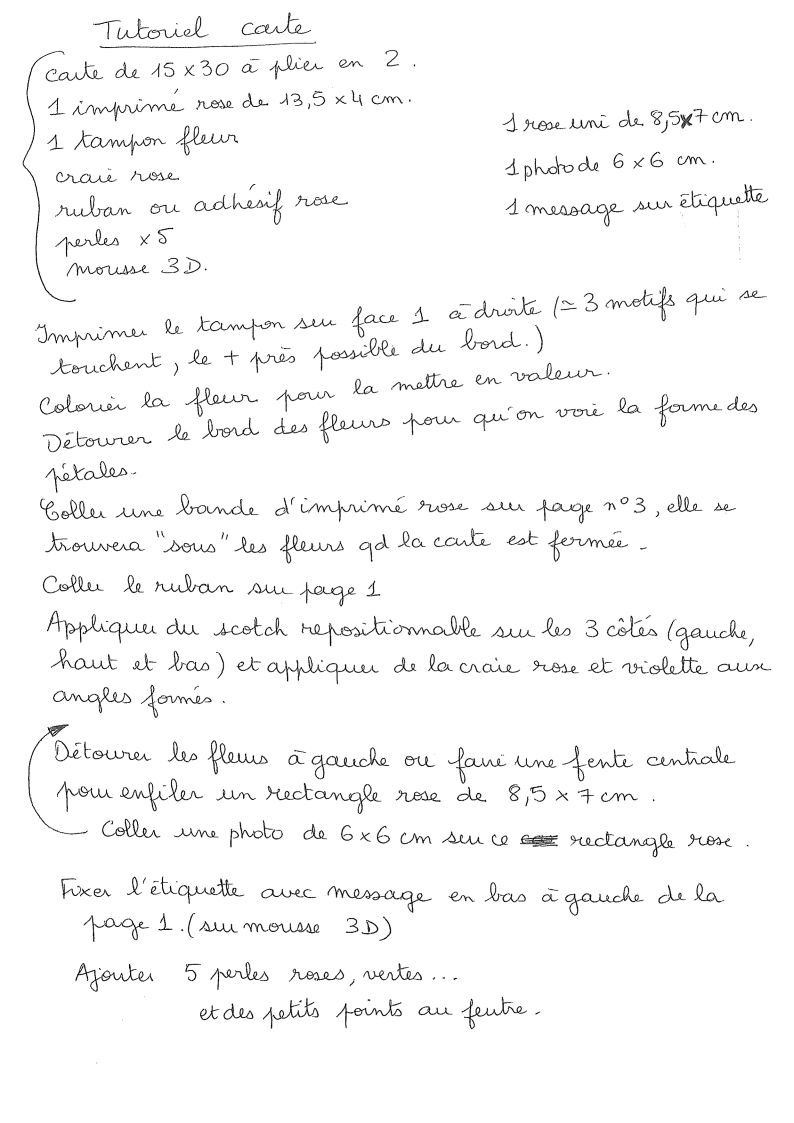 Tutoriel carte
Carte de 15 x 30 à plier en 2.
1 imprimé rose de 13,5 x 4 cm.
1 tampon fleur
craie rose
ruban ou adhésif rose
perles x 5
mousse 3D.
1 rose uni de 8,5x7 cm.
1 photo de 6 x 6 cm.
1 message sur étiquette
Imprimer le tampon sur face 1 à droite (≃ 3 motifs qui se
touchent, le + près possible du bord.)
Colorier la fleur pour la mettre en valeur.
Détourer le bord des fleurs pour qu'on voie la forme des
pétales.
Coller une bande d'imprimé rose sur page n°3, elle se
trouvera "sous" les fleurs qd la carte est fermée.
Coller le ruban sur page 1
Appliquer du scotch repositionnable sur les 3 côtés (gauche,
haut et bas) et appliquer de la craie rose et violette aux
angles formés.
Détourer les fleurs à gauche ou faire une fente centrale
pour enfiler un rectangle rose de 8,5 x 7 cm.
Coller une photo de 6x6 cm sur ce rectangle rose.
Fixer l'étiquette avec message en bas à gauche de la
page 1. (sur mousse 3D)
Ajouter 5 perles roses, vertes...
et des petits points au feutre.